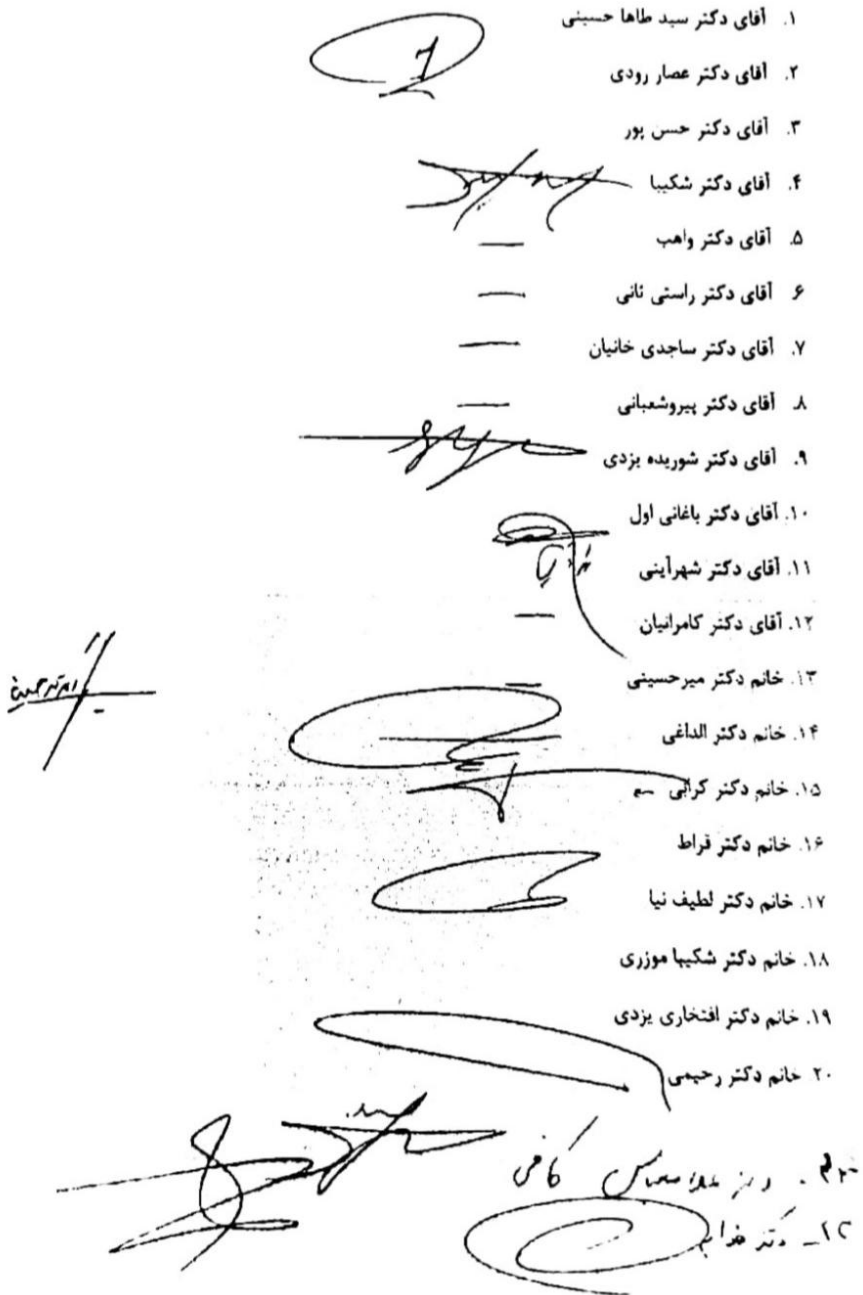 ۱. آقای دکتر سید طاها حسینی
۲. آقای دکتر عصار رودی
۳. آقای دکتر حسن پور
۴. آقای دکتر شکیبا
۵. آقای دکتر واهب
۶. آقای دکتر راستی ثانی
۷. آقای دکتر ساجدی خانیان
۸. آقای دکتر پیروشعبانی
۹. آقای دکتر شوریده یزدی
۱۰. آقای دکتر باغانی اول
۱۱. آقای دکتر شهرآینی
۱۲. آقای دکتر کامرانیان
۱۳. خانم دکتر میرحسینی
۱۴. خانم دکتر الداغی
۱۵. خانم دکتر کرابی
۱۶. خانم دکتر قراط
۱۷. خانم دکتر لطیف نیا
۱۸. خانم دکتر شکیبا موزری
۱۹. خانم دکتر افتخاری یزدی
۲۰. خانم دکتر رحیمی
کافی
دکتر